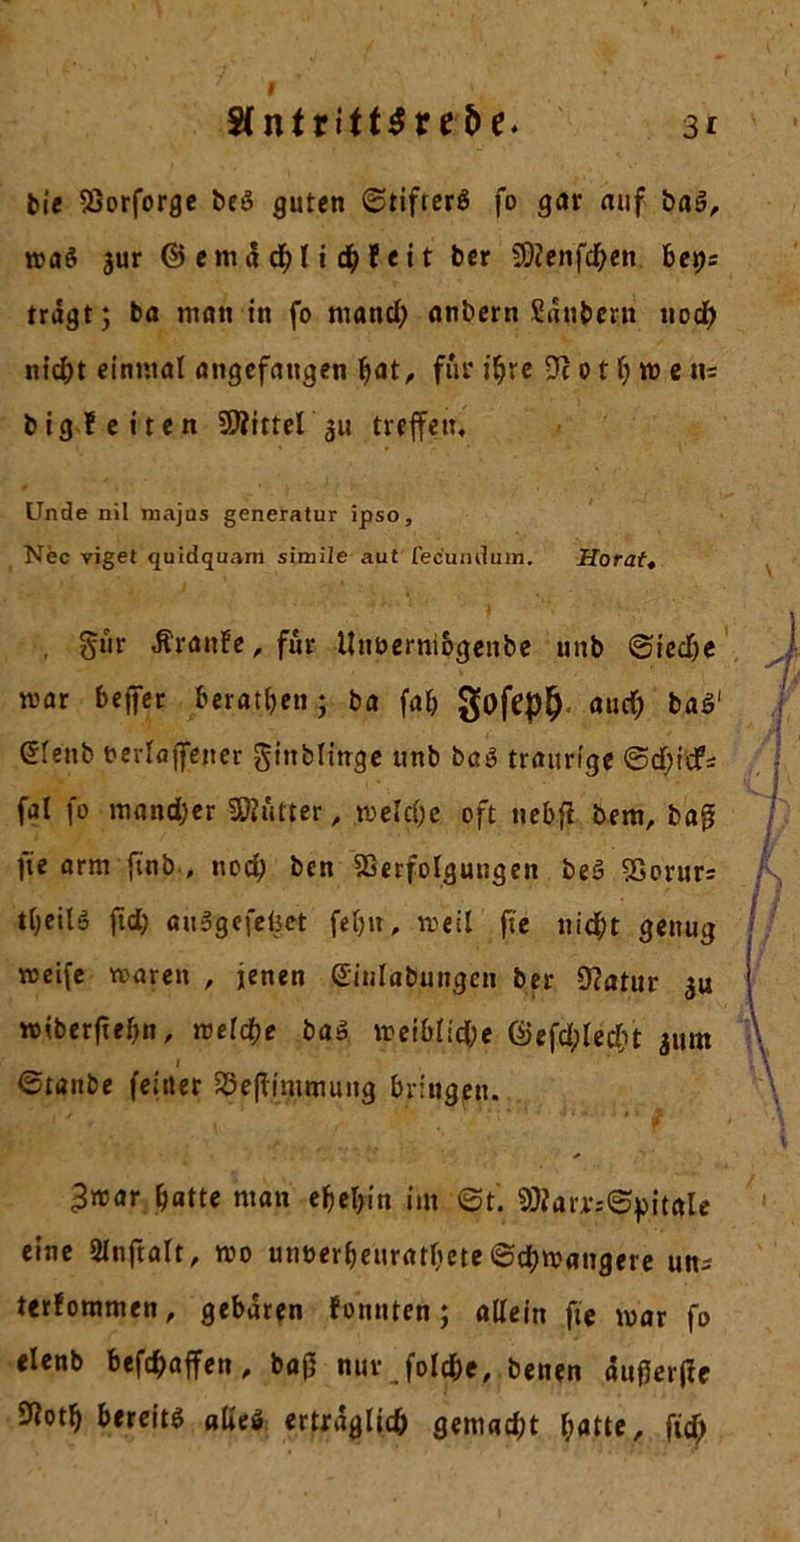 Antrittsrede. 31
die Vorsorge des guten Stifters so gar auf das,
was zur Gemächlichkeit der Menschen bey-
trägt; da man in so manch andern Ländern noch
nicht einmal angefangen hat, für ihre Nothwen-
digkeiten Mittel zu treffen.
Unde nil majus generatur ipso,
Nec viget quidquam simile aut fecundum. Horat.
Für Kranke, für Unvermögende und Sieche
war besser berathen; da sah Joseph auch das
Elend verlassener Findlinge und das traurige Schick-
sal so mancher Mütter, welche oft nebst dem, daß
sie arm sind, noch den Verfolgungen des Vorur-
theils sich ausgesetzet sehn, weil sie nicht genug
weise waren, jenen Einladungen der Natur zu
widerstehn, welche das weibliche Geschlecht zum
Stande seiner Bestimmung bringen.
Zwar hatte man ehehin im St. Marx-Spitale
eine Anstalt, wo unverheurathete Schwangere un-
terkommen, gebären konnten; allein sie war so
elend beschaffen, daß nur solche, denen äußerste
Noth bereits alles erträglich gemacht hatte, sich